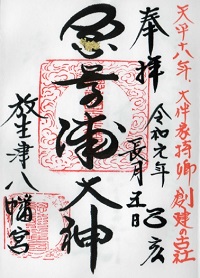 天平十八年 大伴家持卿 創建の古社
奉拝
令和元年 己亥
長月五日
奈呉浦大神
放生津八幡宮